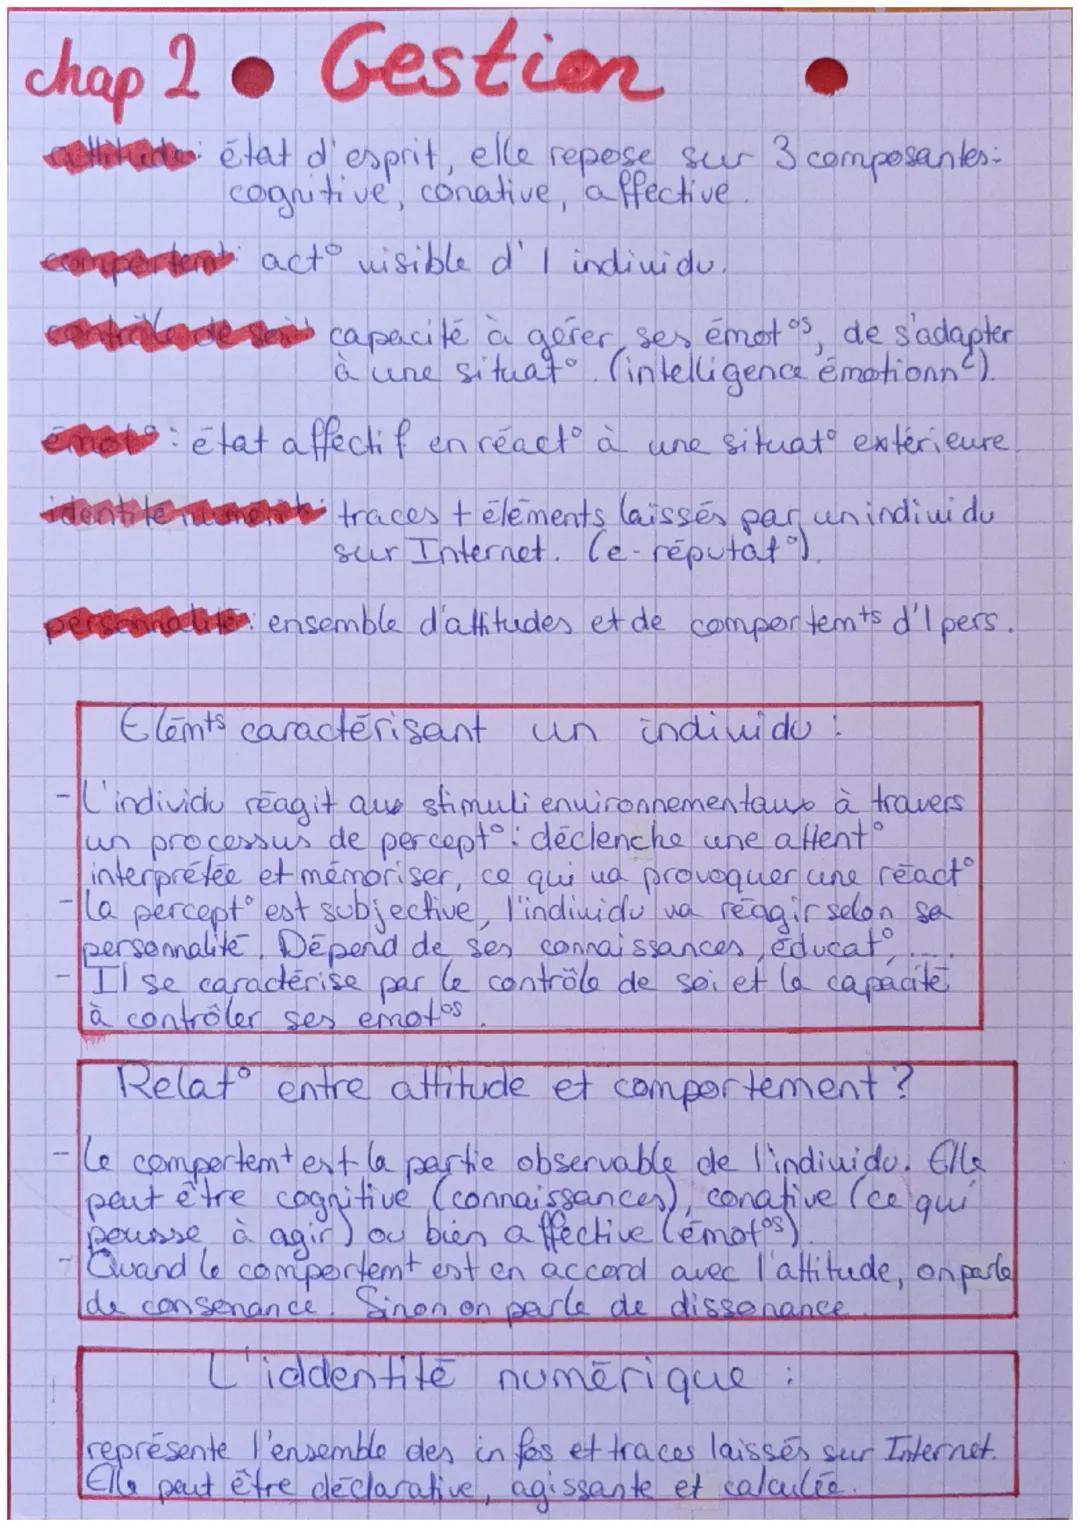 chap 2 • Gestion
attitude : état d'esprit, elle repose sur 3 composantes :
cognitive, conative, affective.
comportemt : act° visible d'1 individu.
contrôle de soi : capacité à gérer ses émot°s, de s'adapter
à une situat°. (intelligence émotionnel).
émot° : état affectif en réact° à une situat° extérieure.
identité numérik : traces + éléments laissés par un individu
sur Internet. (e-réputat°).
personnalité : ensemble d'attitudes et de comportemts d'1 pers.
Elémts caractérisant un individu :
- L'individu réagit aux stimuli environnementaux à travers
un processus de percept° : déclenche une attent°
interprétée et mémoriser, ce qui va provoquer une réact°
- La percept° est subjective, l'individu va réagir selon sa
personnalité. Dépend de ses connaissances, éducat°, ....
- Il se caractérise par le contrôle de soi et la capacité
à contrôler ses emot°s.
Relat° entre attitude et comportement ?
- Le comportemt est la partie observable de l'individu. Elle
peut être cognitive (connaissances), conative (ce qui
pousse à agir) ou bien affective (émot°s).
- Quand le comportemt est en accord avec l'attitude, on parle
de consonance. Sinon on parle de dissonance.
L'iddentité numérique :
représente l'ensemble des infos et traces laissés sur Internet.
Elle peut être déclarative, agissante et calculée.